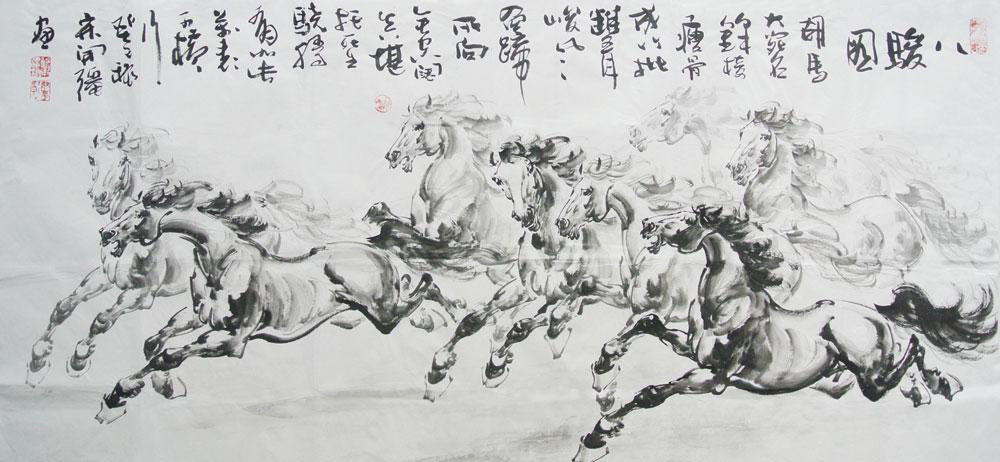 八駿圖
胡馬
大宛名
鋒棱
瘦骨
成竹批
雙耳
峻风入
四蹄
所向
無空闊
真堪
托死生
驍騰
有如此
萬里
可橫
行
畫